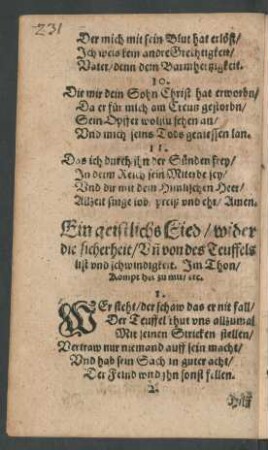 231
Der mich mit sein Blut hat erlöst/
Ich weis kein andre Grechtigkeit/
Vater/denn dein Barmhertzigkeit.
10.
Die mir dein Sohn Christ hat erworbn/
Da er für mich am Creutz gestorbn/
Sein Opffer wollstu sehen an/
Vnd mich seins Tods geniessen lan.
11.
Das ich durch jhn der Sünden frey/
In deim Reich sein Miterbe sey/
Vnd dir mit dem Himlischen Heer/
Allzeit singe lob/ preis vnd ehr/ Amen.
Ein geistlichs Lied/ wider
die sicherheit/ Vñ von des Teuffels
list vnd schwindigkeit. Im Thon/
Kompt her zu mir/ etc.
1.
WEr steht/der schaw das er nit fall/
Der Teuffel thut vns allzumal
Mit seinen Stricken stellen/
Vertraw nur niemand auff sein macht/
Vnd hab sein Sach in guter acht/
Der Feind wird jhn sonst fellen.
2.